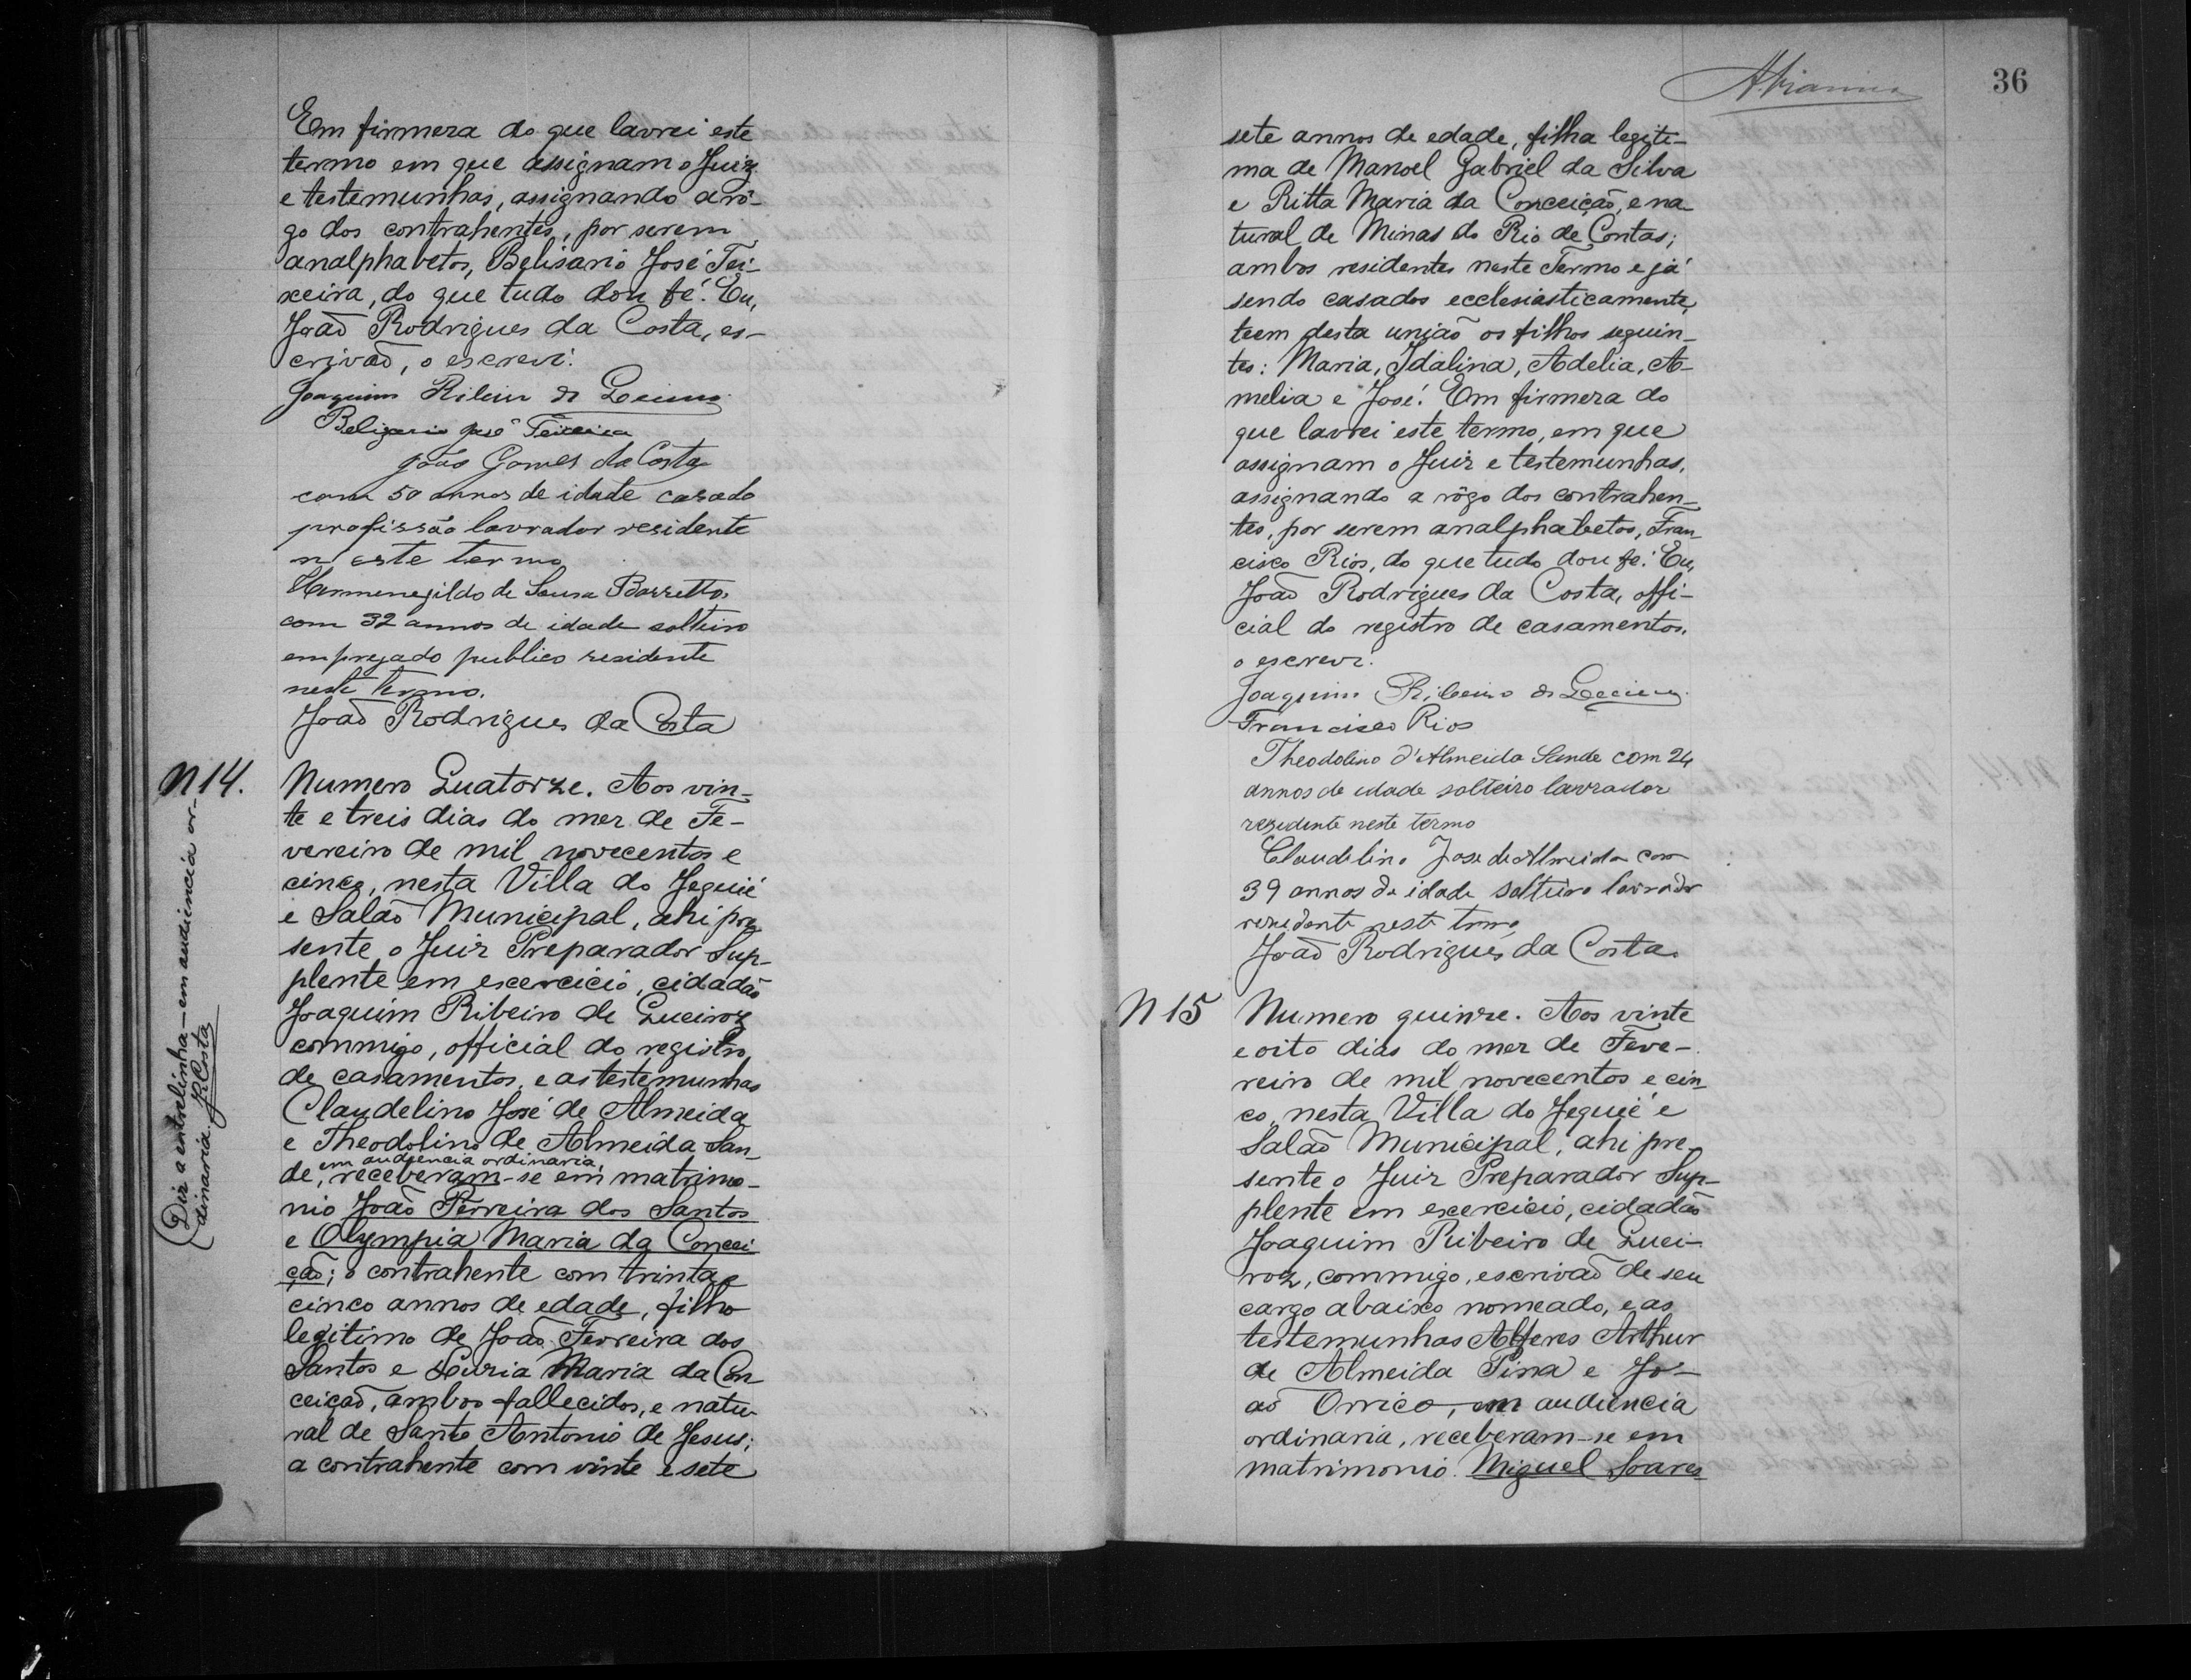 Em firmeza do que lavrei este
termo em que assignam o Juiz
e testemunhas, assignando a rô-
go dos contrahentes, por serem
analphabetos, Belisario José Tei-
xeira, do que tudo dou fé. Eu,
João Rodrigues da Costa, es-
crivão, o escrevi.
Joaquim Ribeiro de
Belizario José Teixeira
João Gomes da Costa
com 50 annos de idade casado
profissão lavrador residente
n'este termo
Hermenegildo de Sousa Barretto,
com 32 annos de idade solteiro
empregado publico residente
neste termo.
João Rodrigues da Costa
N 14.
Numero Quatorze. Aos vin-
te e treis dias do mez de Fe-
vereiro de mil novecentos e
cinco, nesta Villa do Jequié
e Salão Municipal, ahi pre
sente o Juiz Preparador Sup-
plente em escercicio, cidadão
Joaquim Ribeiro de Queiroz
commigo, official do registro
de casamentos, e as testemunhas
Claudelino José de Almeida
e Theodolino de Almeida San-
em audiencia ordinaria,
de, receberam-se em matrimo-
nio João Ferreira dos Santos
e Olympia Maria da Concei
ção; o contrahente com trinta e
cinco annos de edade, filho
legitimo de João Ferreira dos
Santos e Luzia Maria da Con
ceição, ambos fallecidos, e natu-
ral de Santo Antonio de Jesus;
a contrahente com vinte e sete
Diz a entrelinha - em audiencia or-
dinaria. JRCosta
36
sete annos de edade, filha legiti-
ma de Manoel Gabriel da Silva
e Ritta Maria da Conceição, e na
tural de Minas do Rio de Contas;
ambos residentes neste Termo e já
sendo casados ecclesiasticamente,
teem desta união os filhos seguin-
tes: Maria, Idalina, Adelia, A-
melia e José. Em firmeza do
que lavrei este termo, em que
assignam o Juiz e testemunhas,
assignando a rôgo dos contrahen-
tes, por serem analphabetos, Fran
cisco Rios, do que tudo dou fé. Eu,
João Rodrigues da Costa, offi-
cial do registro de casamentos,
o escrevi.
Joaquim Ribeiro de
Francisco Rios
Theodolino d'Almeida Sande com 24
annos de idade solteiro lavrador
rezidente neste termo
Claudelino Jose de Almeida com
39 annos de idade solteiro lavrador
rezidente neste termo
João Rodrigues da Costa
N 15
Numero quinze. Aos vinte
e oito dias do mez de Feve-
reiro de mil novecentos e cin
co, nesta Villa do Jequié e
Salão Municipal, ahi pre-
sente o Juiz Preparador Sup-
plente em escercicio, cidadão
Joaquim Ribeiro de Quei-
roz, commigo, escrivão de seu
cargo abaixo nomeado, e as
testemunhas Alferes Arthur
de Almeida Pina e Jo-
ão Orrico, em audiencia
ordinaria, receberam-se em
matrimonio Miguel Soares